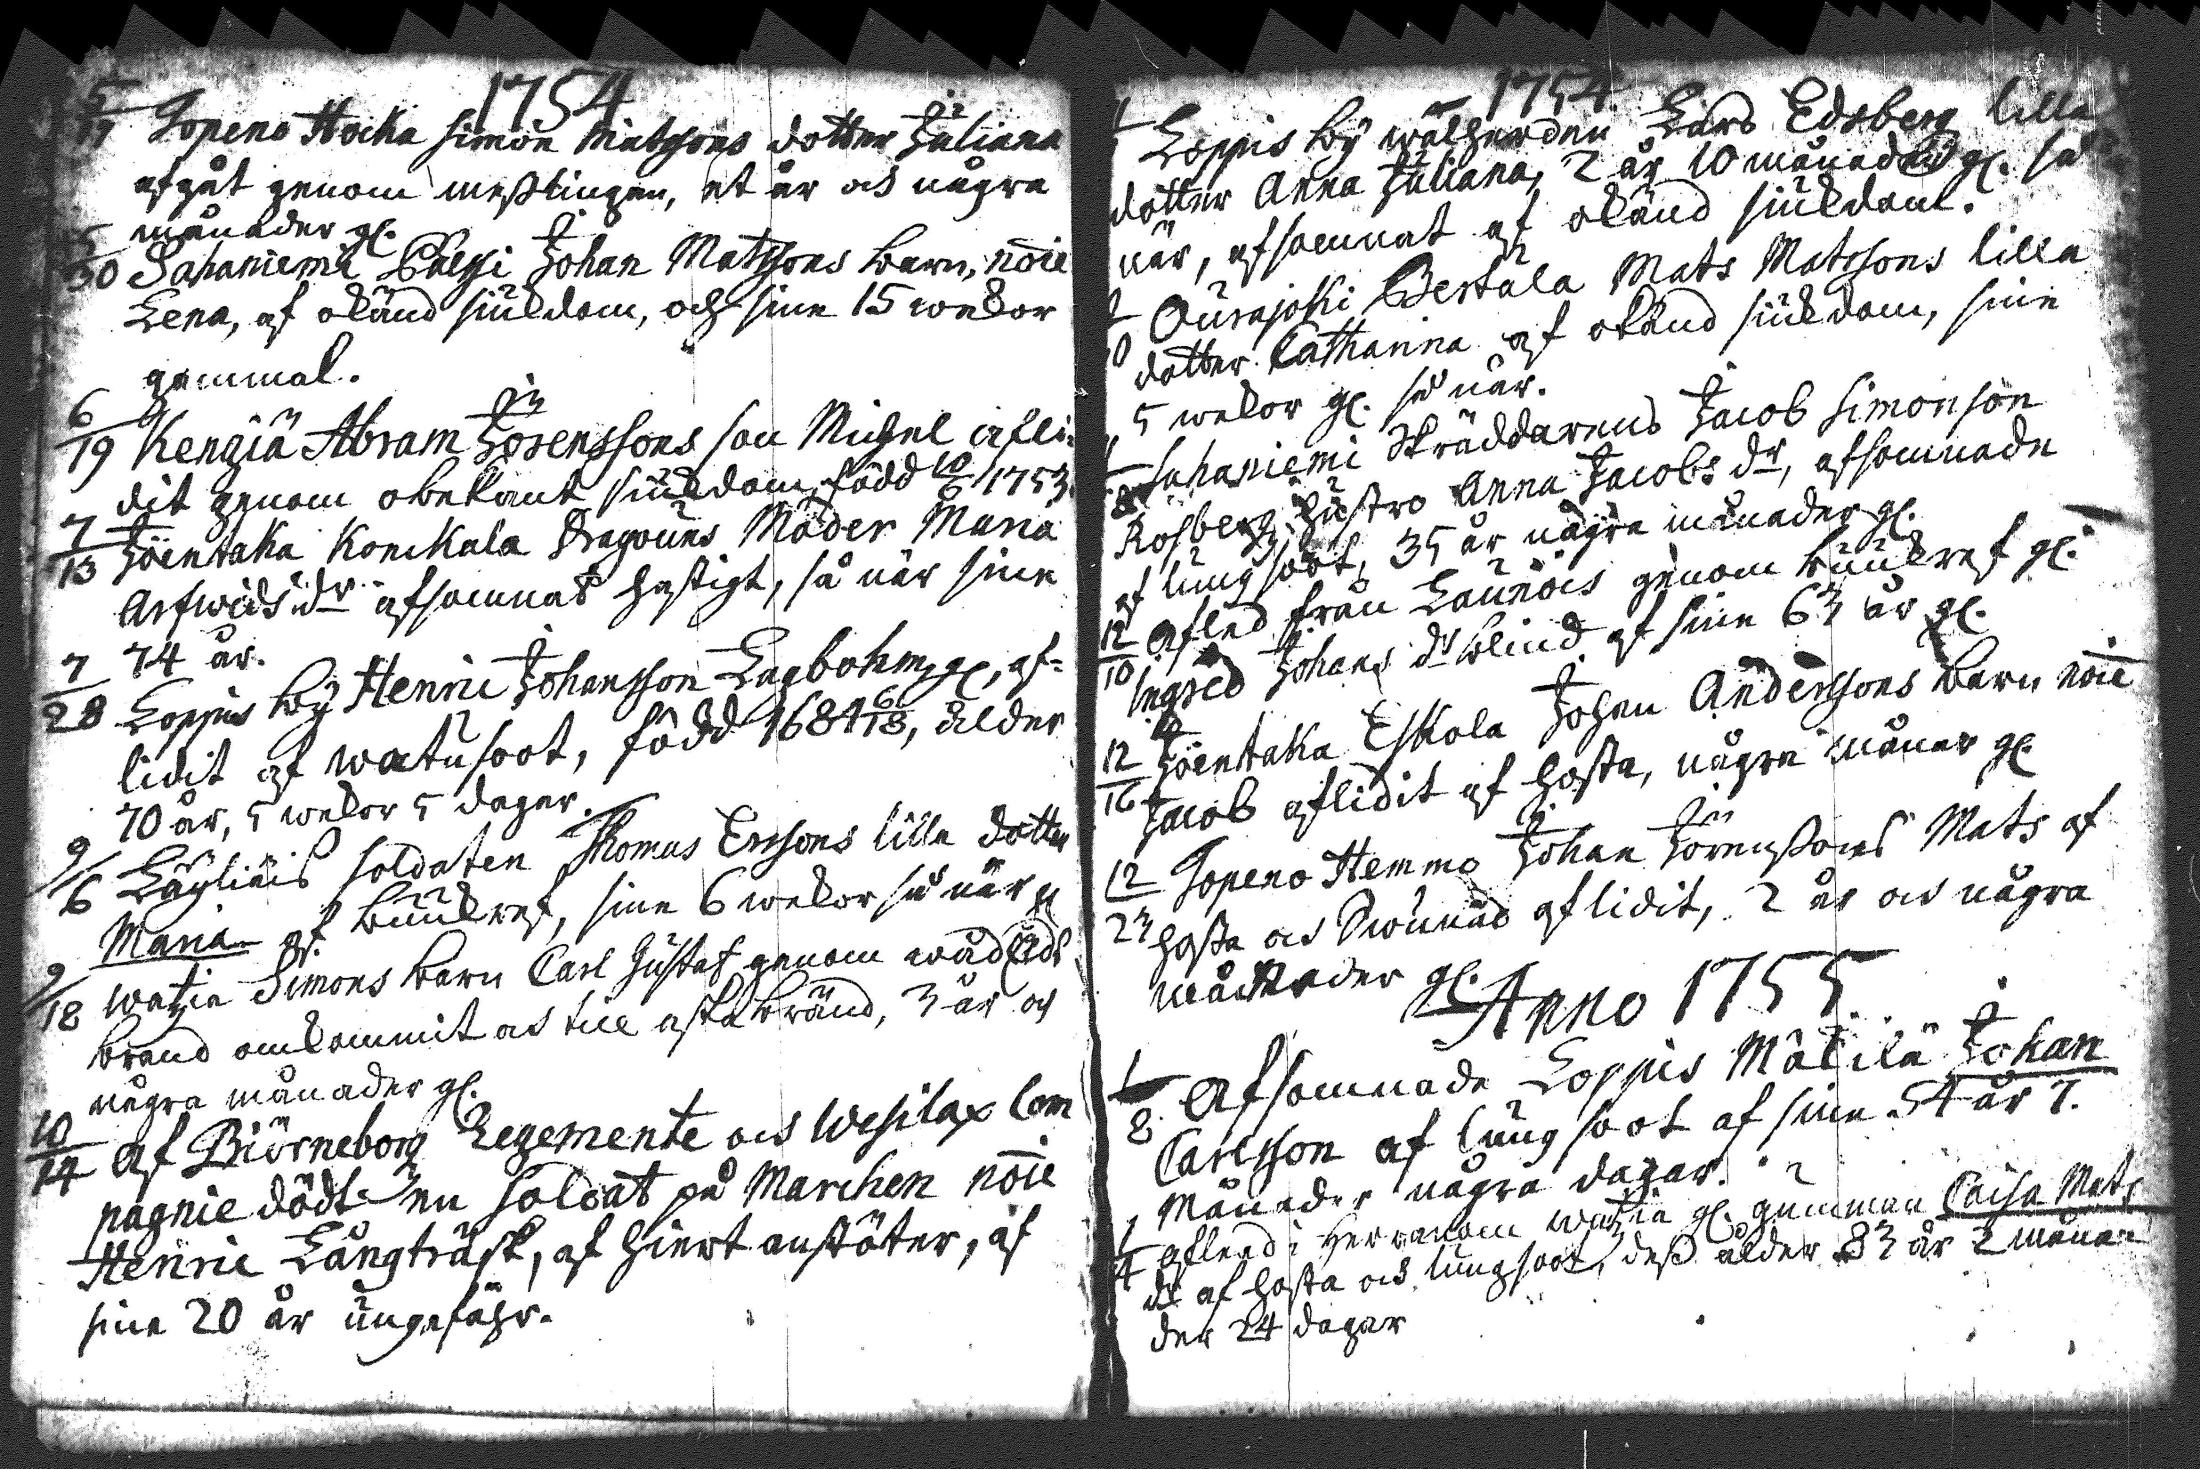 1754
5/19 Topeno Hocka Simon Matssons dotter Juliana
afgåt genom messlingen, et år och någre
månader gl.
5/30 Sahaniemi Påessi Johan Matssons barn, noie
Lena, af okänd siukdom, och sine 15 wekor
gammal.
6/19 Kengiä Abram Jörenssons son Michel afli-
dit genom obekant siukdom, född 10/6 1753.
7/13 Jöentaka Konckala Dragouns Moder Maria
Arfwids dr afsomnat hastigt, så när sine
74 år.
7/28 Loppis by Henric Johansson Lagbohm gl, af-
lidit af watusoot, född 1684 6/18, ålder
70 år, 5 wekor 5 dagar.
9/6 Läyliäis soldaten Thomas Erssons lilla dotter
Maria af buukref, sine 6 wekor så när gl
9/18 Watzia Simons barn Carl Gustaf genom wådeld
brand omkommit och till aska bränd, 3 år och
någre månader gl.
10/14 Af Biörneborg Regemente och Wesilax Com
pagnie dödt en soldat på Marchen noie
Henric Långträsk, af hiertanstöter, af
sine 20 år ungefähr.
1754
Loppis by wälherden Lars Edsberg lilla
dotter Anna Juliana, 2 år 10 månader gl. så
när, afsomnat af okänd siukdom.
Ourajoki Bertula Mats Matssons lilla
10 dotter Catharina af okänd siukdom, sine
5 wekor gl. så när.
Sahaniemi Skräddarens Jacob Simonson
8 Rosberg hustro Anna Jacobs dr, afsomnade
af lungsoot, 35 år några månader gl.
12/10 Afled från Launois genom buukref gl.
Ingred Johans dr blind af sine 63 år gl.
12/16 Jöentaka Eskola Johan Anderssons barn noie
Jacob aflidit af hosta, någre månar gl
12/23 Topeno Hemmo Johan Jörenssons Mats af
hosta och swunad aflidit, 2 år och någre
månader gl.
Anno 1755
1/8 Afsomnade Loppis Mälilä Johan
Carlsson af lungsoot af sine 54 år 7.
Månader någre dagar.
1/4 afleed i Herranom Watzia gl. gumman Caisa Mats
dr af hosta och lungsoot, dess ålder 83 år 2 måna
der 24 dagar